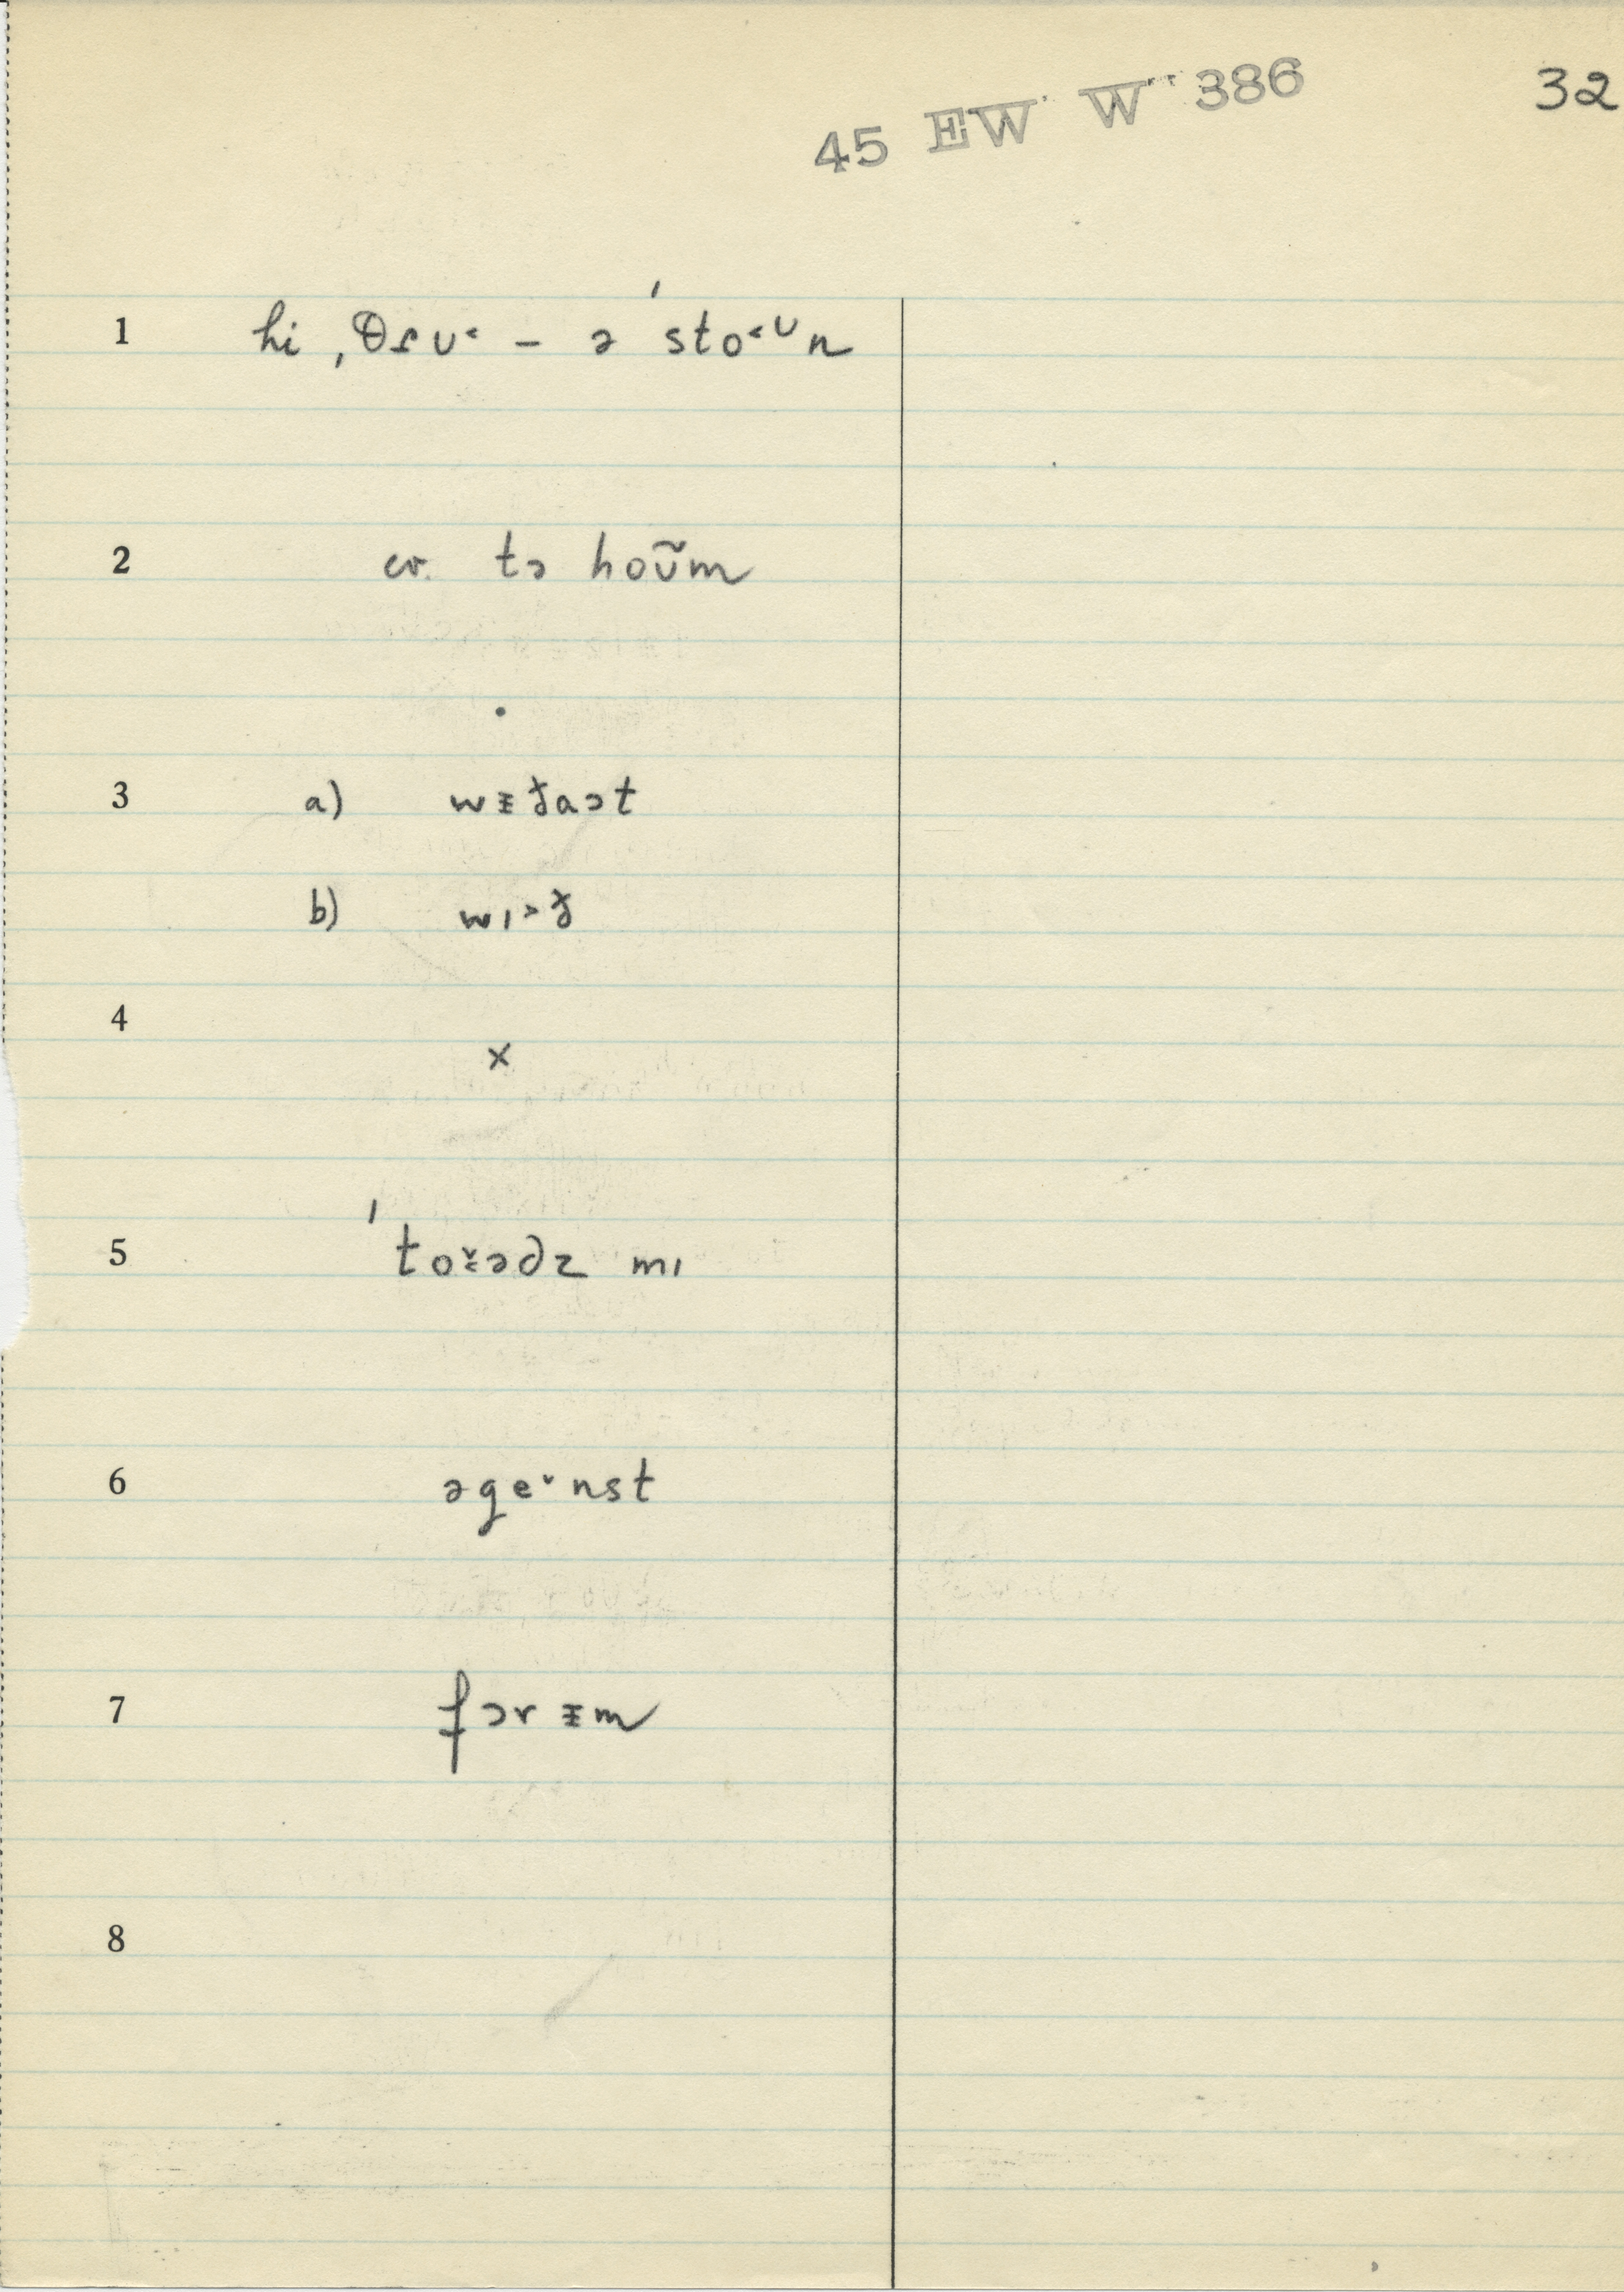 45 EW W 386
32
1 hi ˌθɾu˂ – ə ˈsto˂ᴜn
2 cr. tə hoʊ̃m
3 a) wᵻðaət
b) wɪ˃ð
4 ×
5 ˈto˅˂ədz mɪ
6 əge˅nst
7 fər ᵻm
8